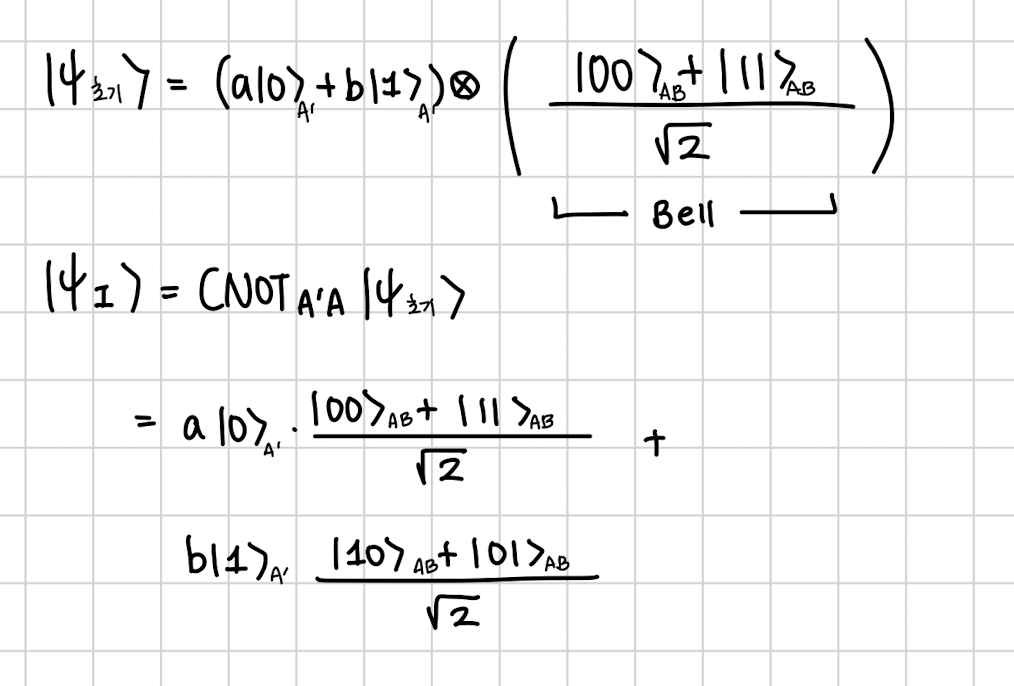 |ψ초기⟩ = (a|0⟩A' + b|1⟩A') ⊗ ( (|00⟩AB + |11⟩AB) / √2 )
Bell
|ψI⟩ = CNOT A'A |ψ초기⟩
= a|0⟩A' · (|00⟩AB + |11⟩AB) / √2 +
b|1⟩A' (|10⟩AB + |01⟩AB) / √2